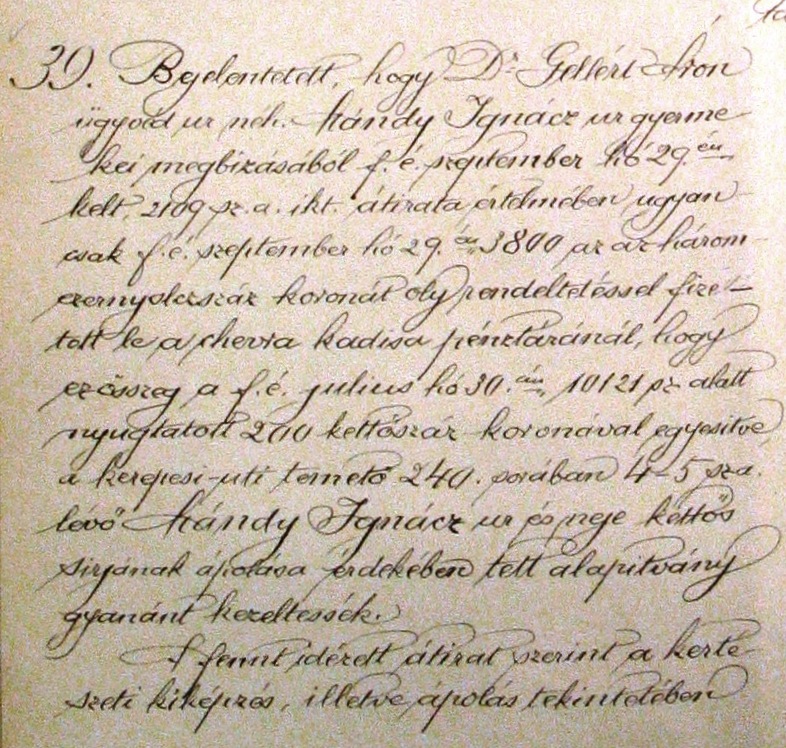 39. Bejelentetett, hogy Dr Gellért Áron
ügyvéd ur néh. Mándy Ignácz ur gyerme-
kei megbizásából f. é. szeptember hó 29.én
kelt, 2109 sz. a. ikt. átirata értelmében ugyan-
csak f. é. szeptember hó 29.én 3800 az az három-
ezernyolczszáz koronát oly rendeltetéssel fize-
tett le a chevra kadisa pénztáránál, hogy
ez összeg a f. é. julius hó 30.án 10121 sz alatt
nyugtatott 200 kettőszáz koronával egyesitve
a kerepesi-uti temető 240. sorában 4-5 sza.
lévő Mándy Ignácz ur és neje kettős
sirjának ápolása érdekében tett alapitvány
gyanánt kezeltessék.
A fennt idézett átirat szerint a kerté-
szeti kiképzés, illetve ápolás tekintetében